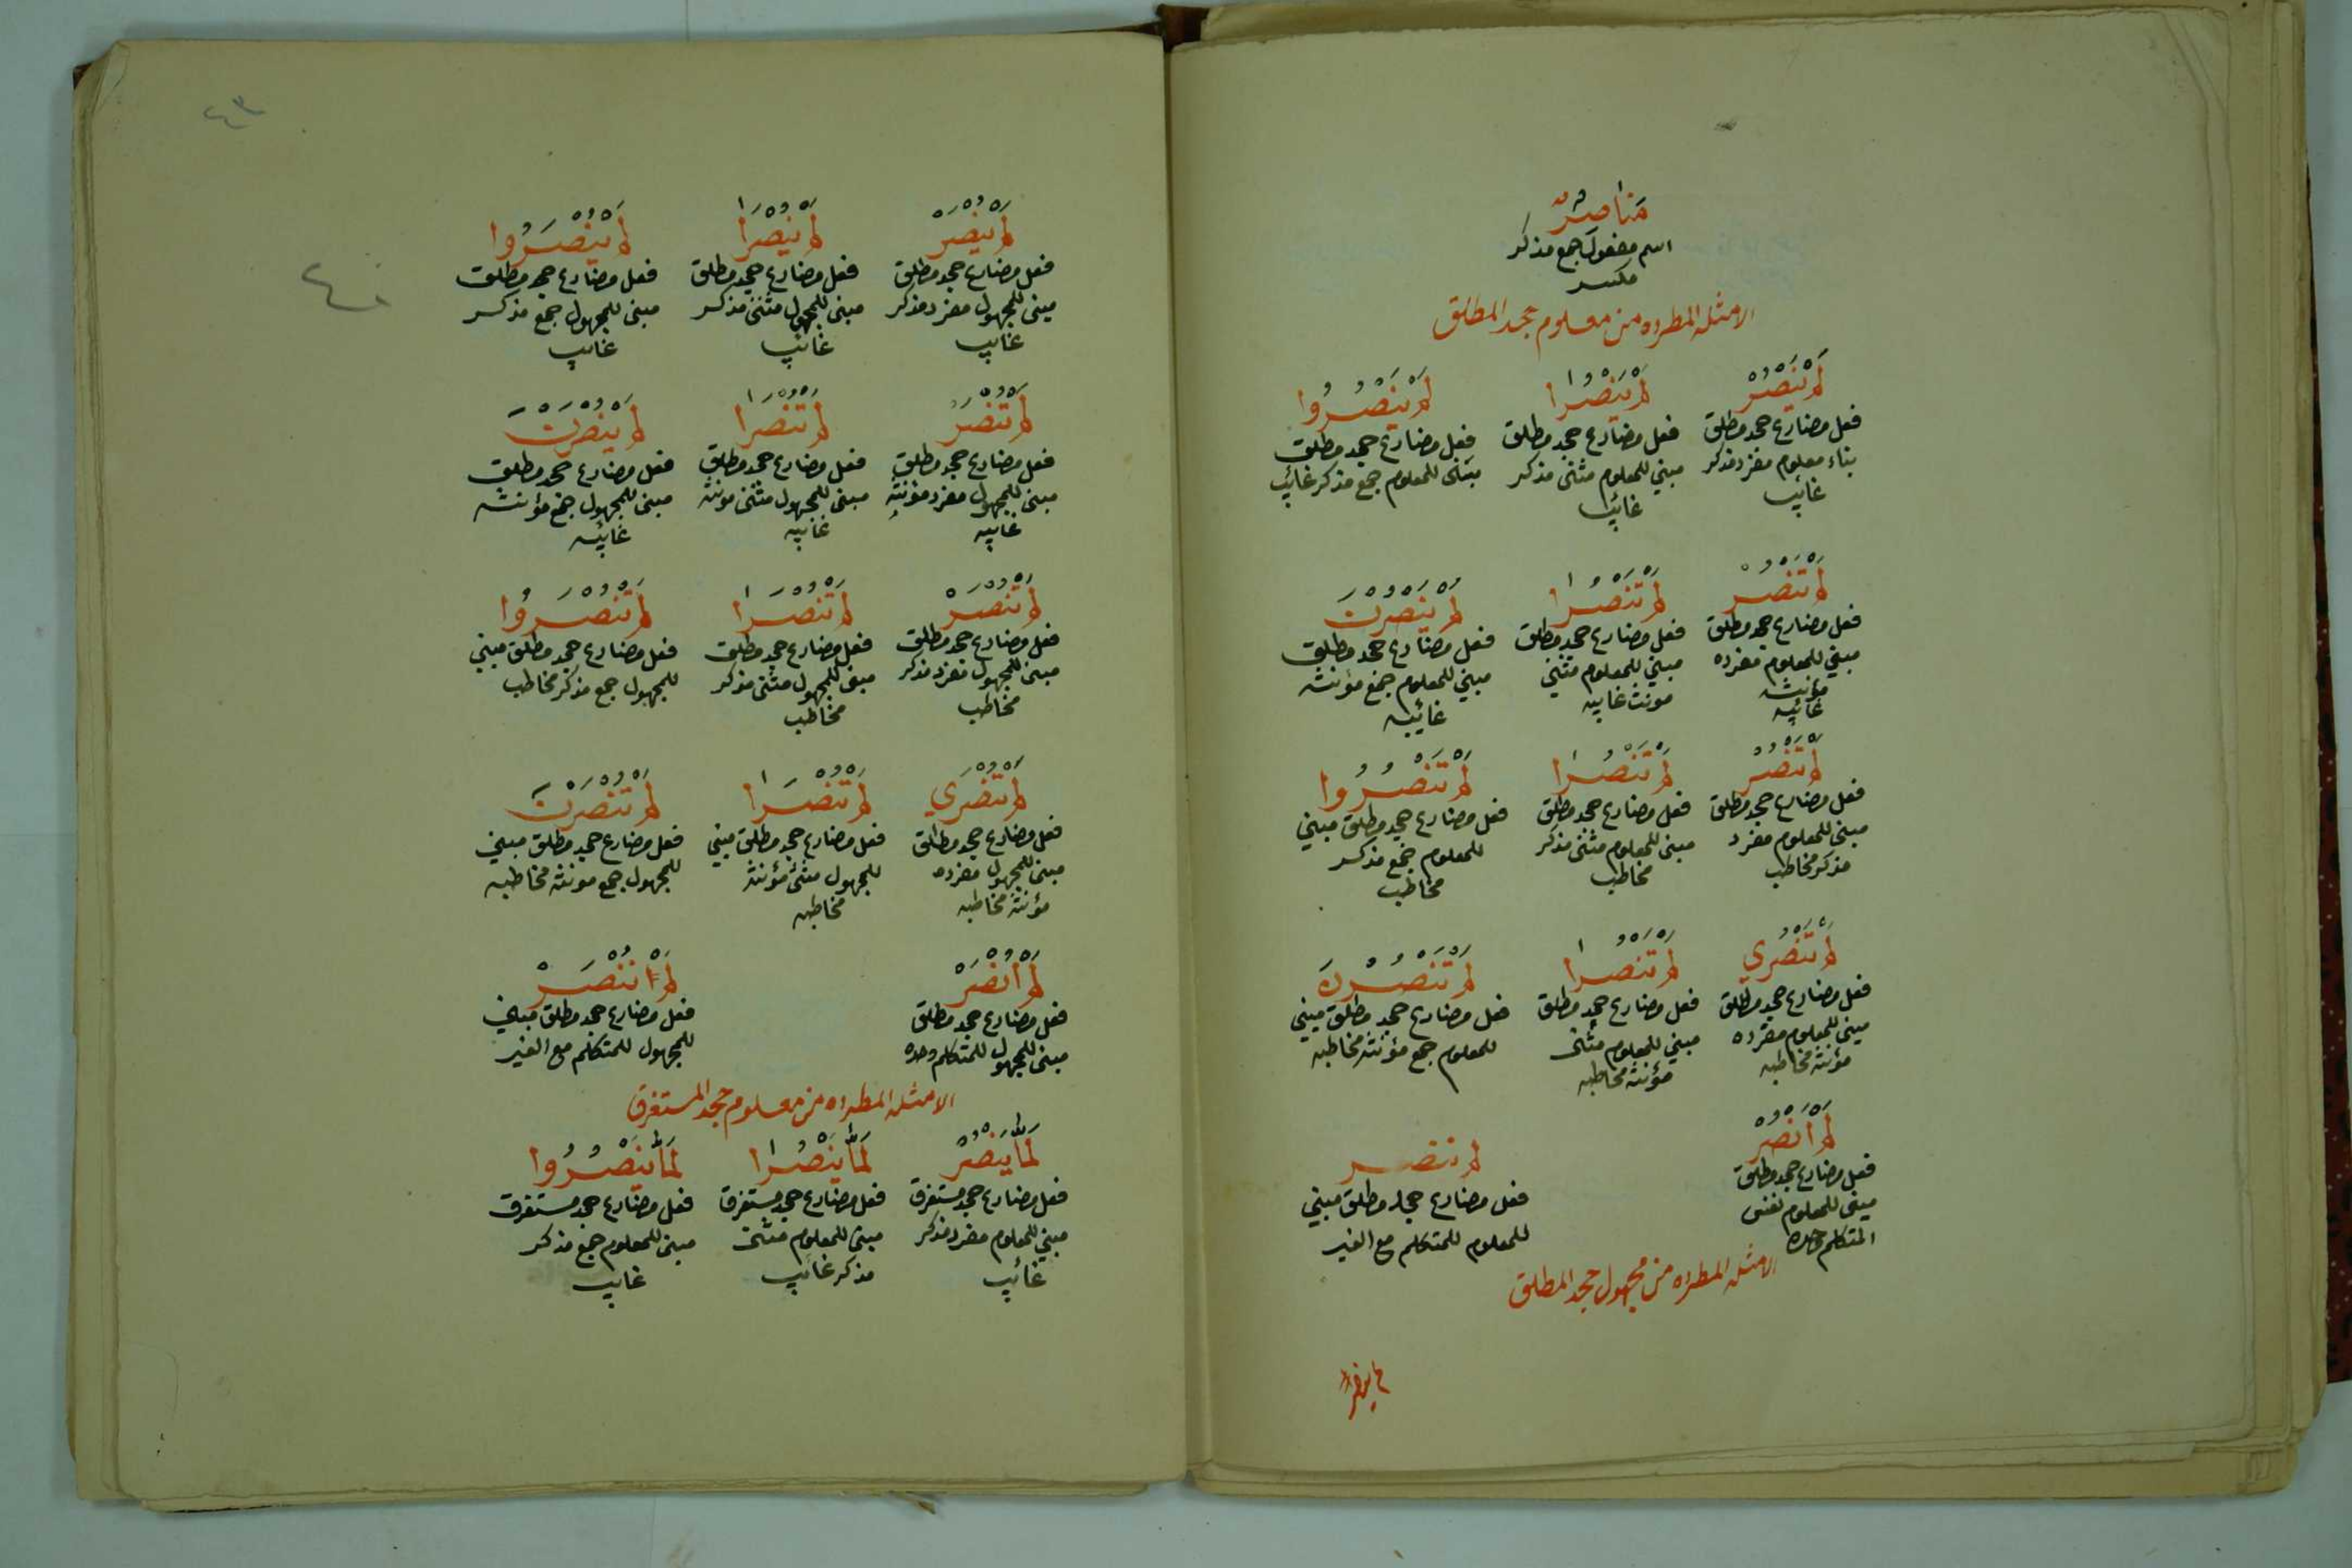 مَناصِرُ
اسم مفعول جمع مذكر
مكسر
الامثله المطرده من معلوم جحد المطلق
لَمْ يَنْصُرْ
فعل مضارع جحد مطلق
بناء معلوم مفرد مذكر
غايب
لَمْ يَنْصُرا
فعل مضارع جحد مطلق
مبني للمعلوم مثنى مذكر
غائب
لَمْ يَنْصُرُوا
فعل مضارع جحد مطلق
مبنى للمعلوم جمع مذكر غائب
لَمْ تَنْصُرْ
فعل مضارع جحد مطلق
مبني للمعلوم مفرده
مؤنثه
غائبه
لَمْ تَنْصُرا
فعل مضارع جحد مطلق
مبني للمعلوم مثني
مونث غايبه
لَمْ يَنْصُرْنَ
فعل مضارع جحد مطلق
مبني للمعلوم جمع مؤنثه
غائبه
لَمْ تَنْصُرْ
فعل مضارع جحد مطلق
مبنى للمعلوم مفرد
مذكر مخاطب
لَمْ تَنْصُرا
فعل مضارع جحد مطلق
مبنى للمعلوم مثنى مذكر
مخاطب
لَمْ تَنْصُرُوا
فعل مضارع جحد مطلق مبني
للمعلوم جمع مذكر
مخاطب
لَمْ تَنْصُرِي
فعل مضارع جحد مطلق
مبنى للمعلوم مفرده
مؤنثه مخاطبه
لَمْ تَنْصُرا
فعل مضارع جحد مطلق
مبني للمعلوم مثنى
مؤنثه مخاطبه
لَمْ تَنْصُرْنَ
فعل مضارع جحد مطلق مبني
للمعلوم جمع مؤنثه مخاطبه
لَمْ أَنْصُرْ
فعل مضارع جحد مطلق
مبنى للمعلوم نفس
المتكلم وحده
لم ننصر
فعل مضارع جحد مطلق مبني
للمعلوم للمتكلم مع الغير
الامثله المطرده من مجهول جحد المطلق
٤٣
لَمْ يُنْصَرْ
فعل مضارع جحد مطلق
مبنى للمجهول مفرد مذكر
غايب
لَمْ يُنْصَرا
فعل مضارع جحد مطلق
مبنى للمجهول مثنى مذكر
غائب
لَمْ يُنْصَرُوا
فعل مضارع جحد مطلق
مبنى للمجهول جمع مذكر
غايب
لَمْ تُنْصَرْ
فعل مضارع جحد مطلق
مبنى للمجهول مفرد مؤنثه
غايبه
لَمْ تُنْصَرا
فعل مضارع جحد مطلق
مبنى للمجهول مثنى مونثه
غايبه
لَمْ يُنْصَرْنَ
فعل مضارع جحد مطلق
مبنى للمجهول جمع مؤنثه
غائبه
لَمْ تُنْصَرْ
فعل مضارع جحد مطلق
مبنى للمجهول مفرد مذكر
مخاطب
لَمْ تُنْصَرا
فعل مضارع جحد مطلق
مبنى للمجهول مثنى مذكر
مخاطب
لَمْ تُنْصَرُوا
فعل مضارع جحد مطلق مبني
للمجهول جمع مذكر مخاطب
لَمْ تُنْصَرِي
فعل مضارع جحد مطلق
مبنى للمجهول مفرده
مؤنثه مخاطبه
لَمْ تُنْصَرا
فعل مضارع جحد مطلق مبني
للمجهول مثنى مؤنثه
مخاطبه
لَمْ تُنْصَرْنَ
فعل مضارع جحد مطلق مبني
للمجهول جمع مونثه مخاطبه
لَمْ أُنْصَرْ
فعل مضارع جحد مطلق
مبنى للمجهول للمتكلم وحده
لَمْ نُنْصَرْ
فعل مضارع جحد مطلق مبني
للمجهول للمتكلم مع الغير
الامثله المطرده من معلوم جحد المستغرق
لَمَّا يَنْصُرْ
فعل مضارع جحد مستغرق
مبني للمعلوم مفرد مذكر
غائب
لَمَّا يَنْصُرا
فعل مضارع جحد مستغرق
مبنى للمعلوم مثنى
مذكر غايب
لَمَّا يَنْصُرُوا
فعل مضارع جحد مستغرق
مبنى للمعلوم جمع مذكر
غايب